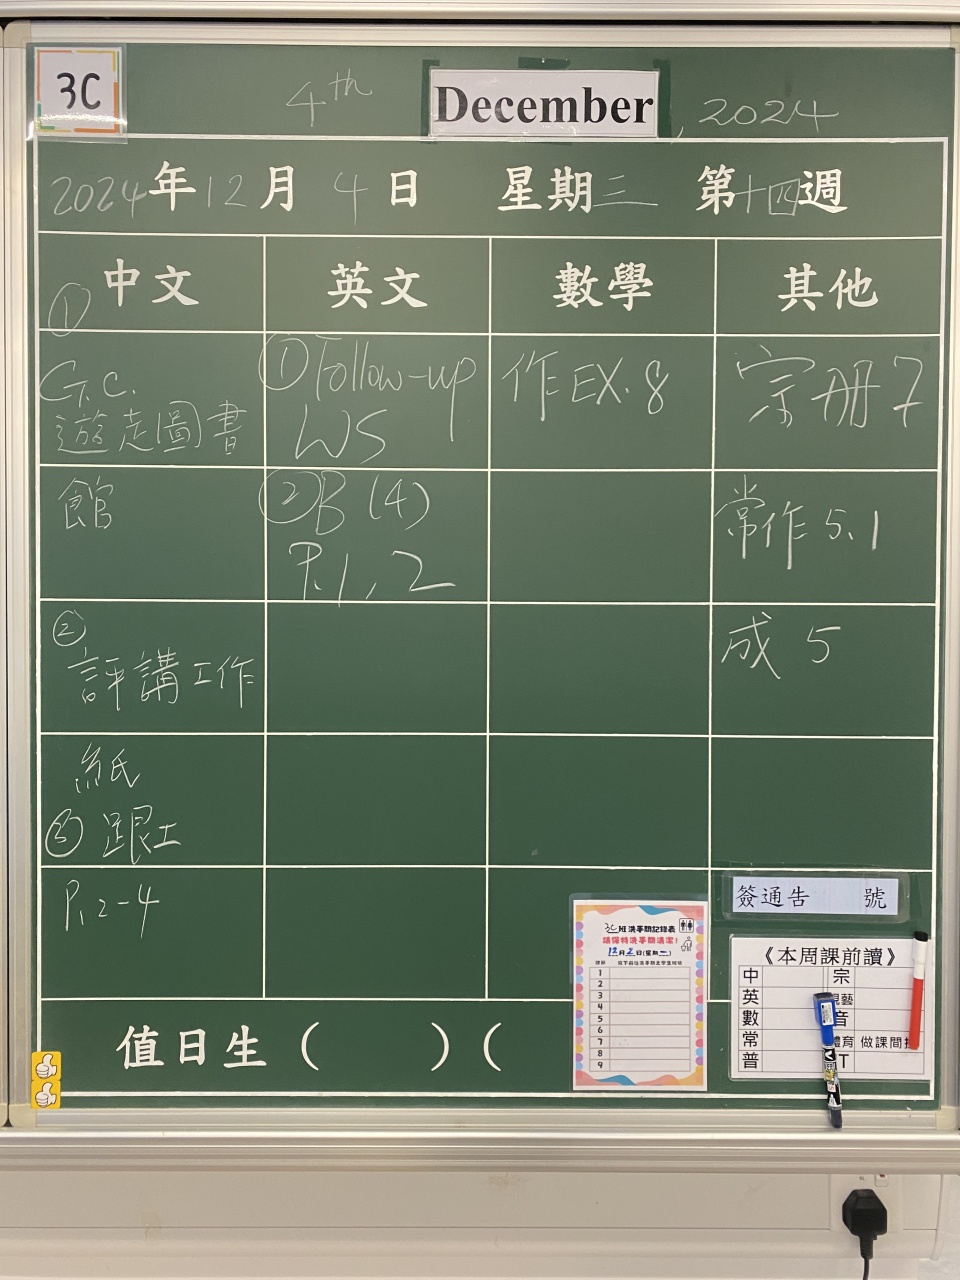 3C
4th December, 2024
2024年12月4日 星期三 第十四週
中文 英文 數學 其他
①
G.C.
遊走圖書
館
②
評講工作
紙
③ 跟工
P.2-4
①Follow-up
WS
②B(4)
P.1,2
作EX.8
宗冊7
常作5.1
成5
簽通告 號
3C班洗手間記錄表
請保持洗手間清潔!
12月2日(星期一)
1
2
3
4
5
6
7
8
9
《本周課前讀》
中 宗
英 視藝
數 音
常 體育 做課間操
普 IT
值日生( )(